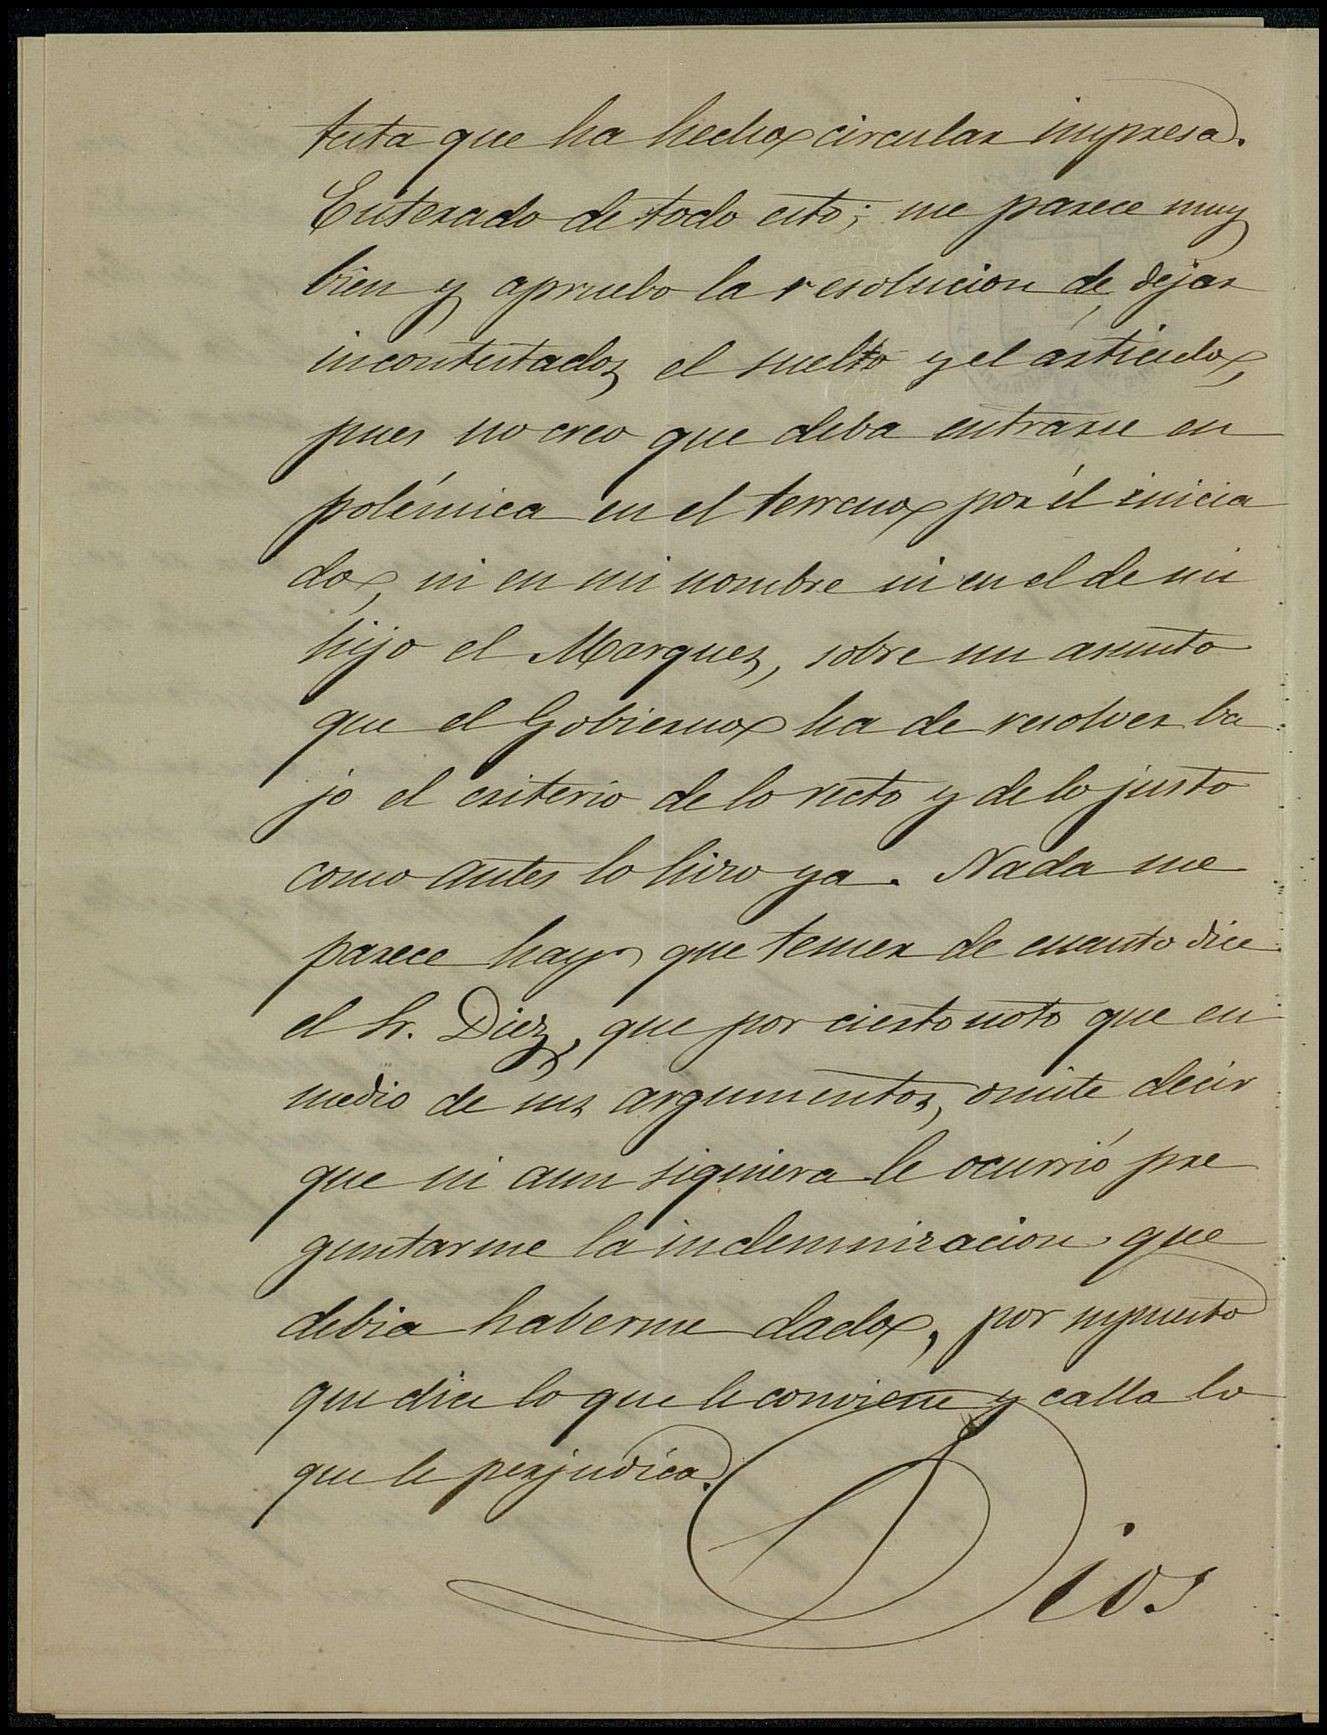 testa que ha hecho circular impresa.
Enterado de todo esto; me parece muy
bien y apruebo la resolucion de dejar
incontestados el suelto y el artículo,
pues no creo que deba entrarse en
polémica en el terreno por él inicia
do, ni en mi nombre ni en el de mi
hijo el Marques, sobre un asunto
que el Gobierno ha de resolver ba
jo el criterio de lo recto y de lo justo
como antes lo hizo ya. Nada me
parece hay que temer de cuanto dice
el Sr. Diez, que por cierto noto que en
medio de sus argumentos, omite decir
que ni aun siquiera le ocurrió pre
guntarme la indemnizacion que
debia haberme dado, por supuesto
que dice lo que le conviene y calla lo
que le perjudica.
Dios